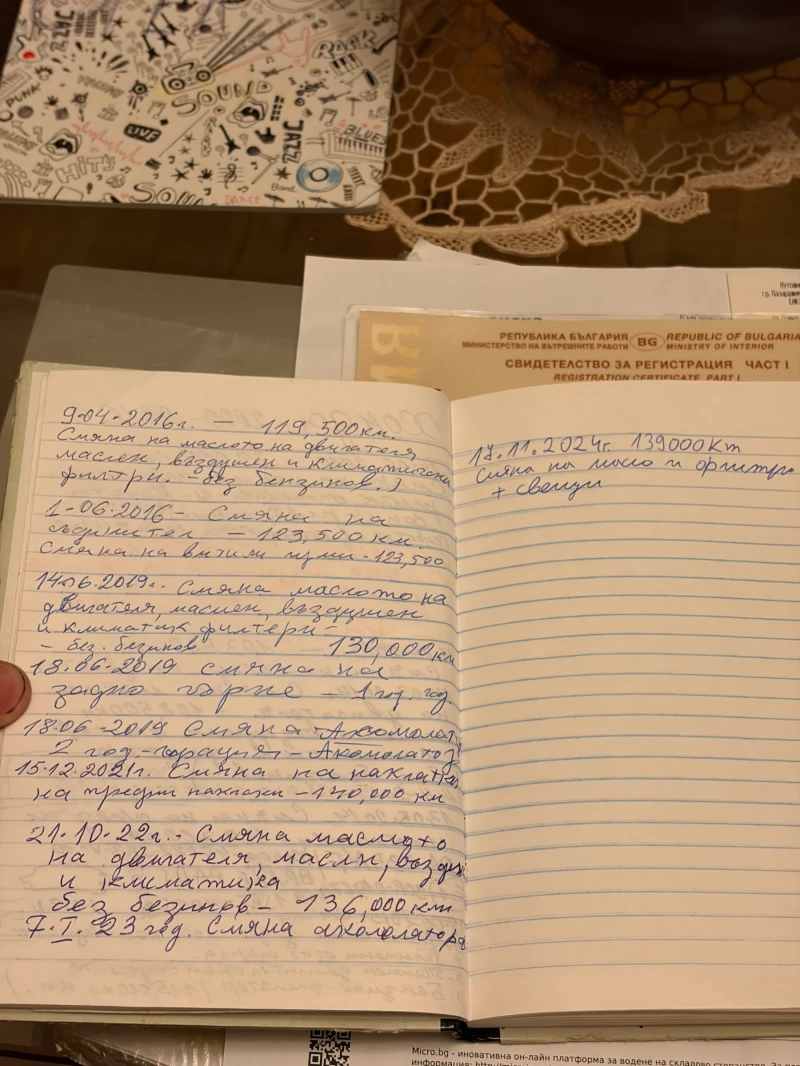 JAZZ
ROCK
SOUND
PUNK
LIVE
JAZZ
BLUES
HITS
SOUL
Band
DANCE
гр. Пазарджик
РЕПУБЛИКА БЪЛГАРИЯ BG REPUBLIC OF BULGARIA
МИНИСТЕРСТВО НА ВЪТРЕШНИТЕ РАБОТИ MINISTRY OF INTERIOR
СВИДЕТЕЛСТВО ЗА РЕГИСТРАЦИЯ ЧАСТ I
REGISTRATION CERTIFICATE PART I
9·04·2016г. — 119,500км.
Смяна на маслото на двигателя,
маслен, въздушен и климатичен
филтри. - без бензинов.)
1-06-2016- Смяна на
съединител — 123,500 км.
Смяна на - 123,500
14.06.2019г. Смяна маслото на
двигателя, маслен, въздушен
и климатик филтери -
- без. безинов 130,000км
18.06-2019 смяна на
задно гърне - 1 год. гар.
18.06-2019 Смяна Акомолат
2 год.-гаранция - Акомолатор
15.12.2021г. Смяна на накладки
на предни накладки - 140,000 км
21.10.22г.- Смяна маслото
на двигателя, маслн, възду
и климатика
без безинов - 136,000км
7.I.23 год. Смяна акомолатора
17.11.2024г. 139000км
Смяна на масло и филтри
+ свещи
Micro.bg - иновативна он-лайн платформа за водене на складово стопанство. За
информация: